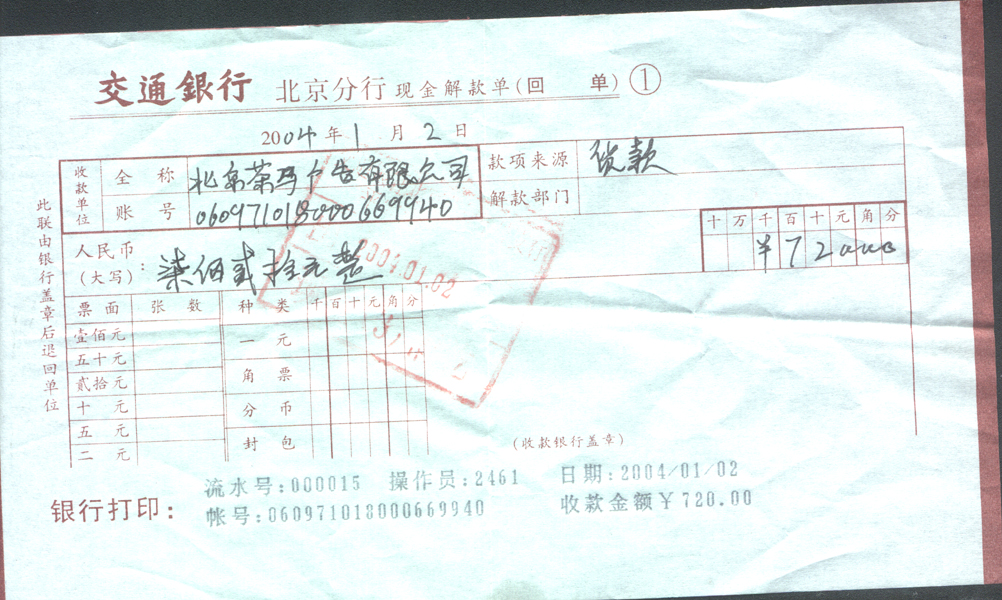 交通銀行 北京分行 现金解款单(回 单) ①
2004年1月2日
收款单位 全称 北京茶马广告有限公司 款项来源 货款
账号 060971018000669940 解款部门
人民币(大写): 柒佰贰拾元整 十万千百十元角分
¥72000
票面 张数 种类 千百十元角分
壹佰元 一元
五十元
贰拾元 角票
十元 分币
五元
二元 封包
此联由银行盖章后退回单位
2004.01.02
(收款银行盖章)
银行打印:
流水号:000015 操作员:2461 日期:2004/01/02
帐号:060971018000669940 收款金额¥720.00